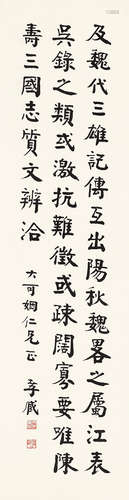 及魏代三雄記傳互出陽秋魏畧之屬江表
吳錄之類或激抗難徵或疎闊寡要唯陳
壽三國志質文辨洽
大可姻仁兄正